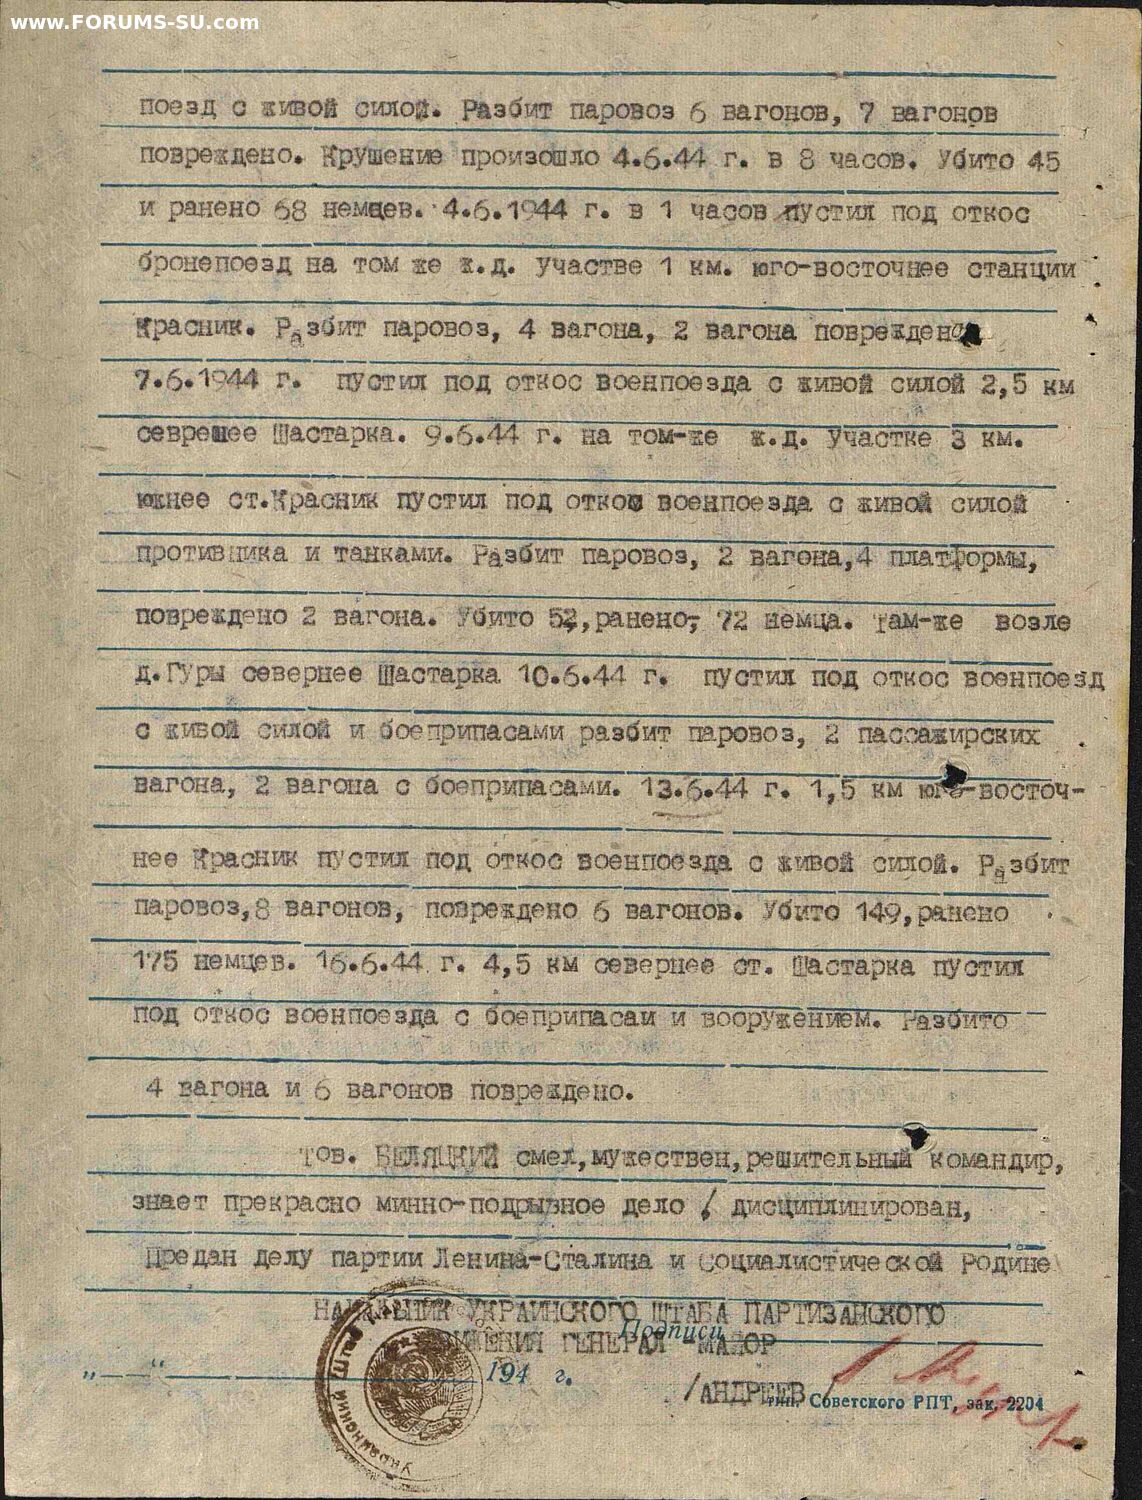 www.FORUMS-SU.com
поезд с живой силой. Разбит паровоз 6 вагонов, 7 вагонов
повреждено. Крушение произошло 4.6.44 г. в 8 часов. Убито 45
и ранено 68 немцев. 4.6.1944 г. в 1 часов пустил под откос
бронепоезд на том же ж.д. участве 1 км. юго-восточнее станции
Красник. Разбит паровоз, 4 вагона, 2 вагона повреждена
7.6.1944 г. пустил под откос военпоезда с живой силой 2,5 км
севрешее Шастарка. 9.6.44 г. на том-же ж.д. участке 3 км.
южнее ст.Красник пустил под откос военпоезда с живой силой
противника и танками. Разбит паровоз, 2 вагона,4 платформы,
повреждено 2 вагона. Убито 52,ранено- 72 немца. Там-же возле
д.Гуры севернее Шастарка 10.6.44 г. пустил под откос военпоезд
с живой силой и боеприпасами разбит паровоз, 2 пассажирских
вагона, 2 вагона с боеприпасами. 13.6.44 г. 1,5 км юго-восточ-
нее Красник пустил под откос военпоезда с живой силой. Разбит
паровоз,8 вагонов, повреждено 6 вагонов. Убито 149,ранено
175 немцев. 16.6.44 г. 4,5 км севернее ст. Шастарка пустил
под откос военпоезда с боеприпасаи и вооружением. Разбито
4 вагона и 6 вагонов повреждено.
Тов. БЕЛЯЦКИЙ смел,мужествен,решительный командир,
знает прекрасно минно-подрывное дело, дисциплинирован,
Предан делу партии Ленина-Сталина и Социалистической Родине
НАЧАЛЬНИК УКРАИНСКОГО ШТАБА ПАРТИЗАНСКОГО
Подписи
ДВИЖЕНИЯ ГЕНЕРАЛ-МАЙОР
"——" 194 г.
/АНДРЕЕВ/
Тип. Советского РПТ, зак. 2204
Украинский Штаб